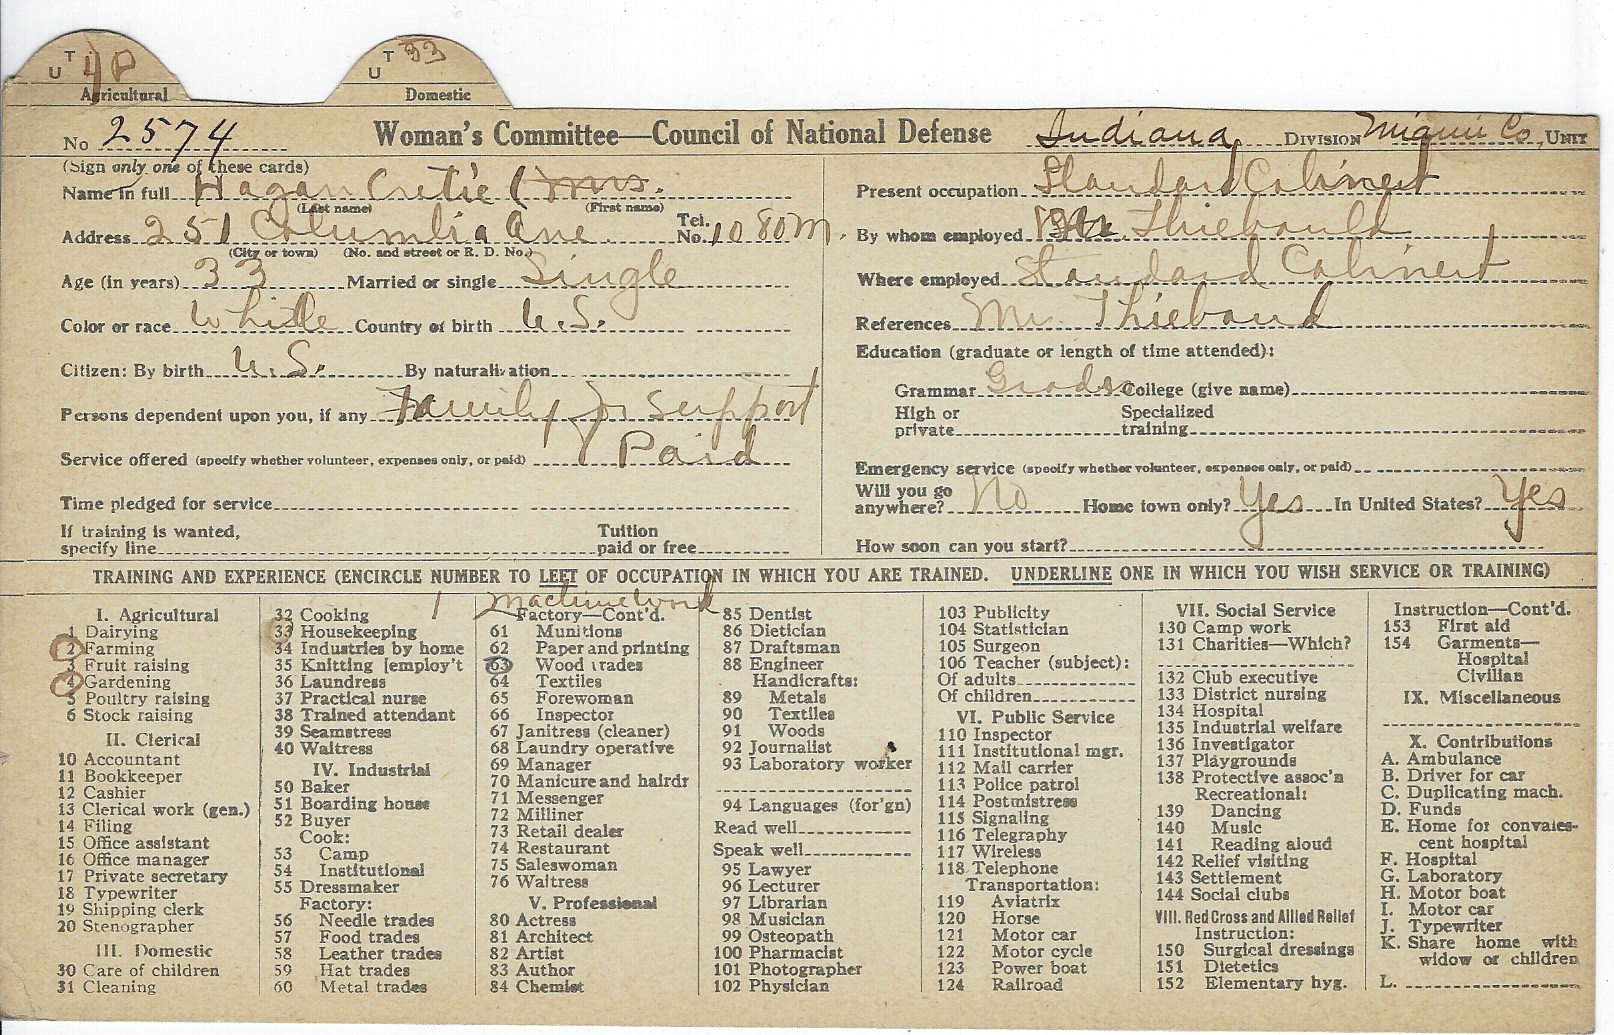 T U 4P
T U 33
Agricultural
Domestic
No 2574 Woman's Committee—Council of National Defense Indiana DIVISION Miami Co. UNIT
(Sign only one of these cards)
Name in full Hagan Cretie (Mrs.
(Last name) (First name)
Address 251 Columbia Ave. Tel. No. 1080M.
(City or town) (No. and street or R. D. No.)
Age (in years) 33 Married or single Single
Color or race White Country of birth U.S.
Citizen: By birth U.S. By naturalization
Persons dependent upon you, if any Family for support
Service offered (specify whether volunteer, expenses only, or paid) Paid
Time pledged for service
If training is wanted,
specify line Tuition paid or free
Present occupation Standard Cabinet
By whom employed Thiebauld
Where employed Standard Cabinet
References Mr. Thiebaud
Education (graduate or length of time attended):
Grammar Grades College (give name)
High or private Specialized training
Emergency service (specify whether volunteer, expenses only, or paid)
Will you go anywhere? No Home town only? Yes In United States? Yes
How soon can you start?
TRAINING AND EXPERIENCE (ENCIRCLE NUMBER TO LEFT OF OCCUPATION IN WHICH YOU ARE TRAINED. UNDERLINE ONE IN WHICH YOU WISH SERVICE OR TRAINING)
I. Agricultural
1 Dairying
2 Farming
3 Fruit raising
4 Gardening
5 Poultry raising
6 Stock raising
II. Clerical
10 Accountant
11 Bookkeeper
12 Cashier
13 Clerical work (gen.)
14 Filing
15 Office assistant
16 Office manager
17 Private secretary
18 Typewriter
19 Shipping clerk
20 Stenographer
III. Domestic
30 Care of children
31 Cleaning
32 Cooking
33 Housekeeping
34 Industries by home
35 Knitting [employ't
36 Laundress
37 Practical nurse
38 Trained attendant
39 Seamstress
40 Waitress
IV. Industrial
50 Baker
51 Boarding house
52 Buyer
Cook:
53 Camp
54 Institutional
55 Dressmaker
Factory:
56 Needle trades
57 Food trades
58 Leather trades
59 Hat trades
60 Metal trades
1 Machine Work
Factory—Cont'd.
61 Munitions
62 Paper and printing
63 Wood trades
64 Textiles
65 Forewoman
66 Inspector
67 Janitress (cleaner)
68 Laundry operative
69 Manager
70 Manicure and hairdr
71 Messenger
72 Milliner
73 Retail dealer
74 Restaurant
75 Saleswoman
76 Waitress
V. Professional
80 Actress
81 Architect
82 Artist
83 Author
84 Chemist
85 Dentist
86 Dietician
87 Draftsman
88 Engineer
Handicrafts:
89 Metals
90 Textiles
91 Woods
92 Journalist
93 Laboratory worker
94 Languages (for'gn)
Read well
Speak well
95 Lawyer
96 Lecturer
97 Librarian
98 Musician
99 Osteopath
100 Pharmacist
101 Photographer
102 Physician
103 Publicity
104 Statistician
105 Surgeon
106 Teacher (subject):
Of adults
Of children
VI. Public Service
110 Inspector
111 Institutional mgr.
112 Mail carrier
113 Police patrol
114 Postmistress
115 Signaling
116 Telegraphy
117 Wireless
118 Telephone
Transportation:
119 Aviatrix
120 Horse
121 Motor car
122 Motor cycle
123 Power boat
124 Railroad
VII. Social Service
130 Camp work
131 Charities—Which?
132 Club executive
133 District nursing
134 Hospital
135 Industrial welfare
136 Investigator
137 Playgrounds
138 Protective assoc'n
Recreational:
139 Dancing
140 Music
141 Reading aloud
142 Relief visiting
143 Settlement
144 Social clubs
VIII. Red Cross and Allied Relief
Instruction:
150 Surgical dressings
151 Dietetics
152 Elementary hyg.
Instruction—Cont'd.
153 First aid
154 Garments—
Hospital
Civilian
IX. Miscellaneous
X. Contributions
A. Ambulance
B. Driver for car
C. Duplicating mach.
D. Funds
E. Home for convales-
cent hospital
F. Hospital
G. Laboratory
H. Motor boat
I. Motor car
J. Typewriter
K. Share home with
widow or children
L.